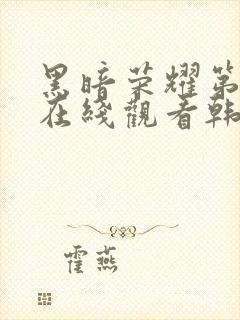 黑暗荣耀第
在綫觀看韩
霍燕